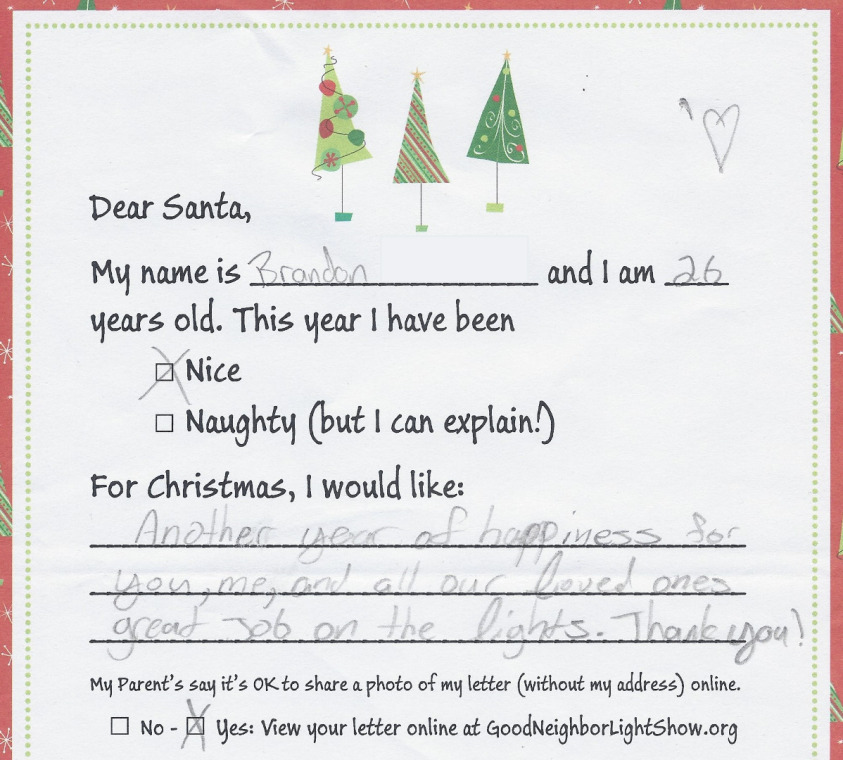 Dear Santa,
My name is Brandon and I am 26
years old. This year I have been
Nice
Naughty (but I can explain!)
For Christmas, I would like:
Another year of happiness for
you, me, and all our loved ones
great job on the lights. Thank you!
My Parent's say it's OK to share a photo of my letter (without my address) online.
No - Yes: View your letter online at GoodNeighborLightShow.org